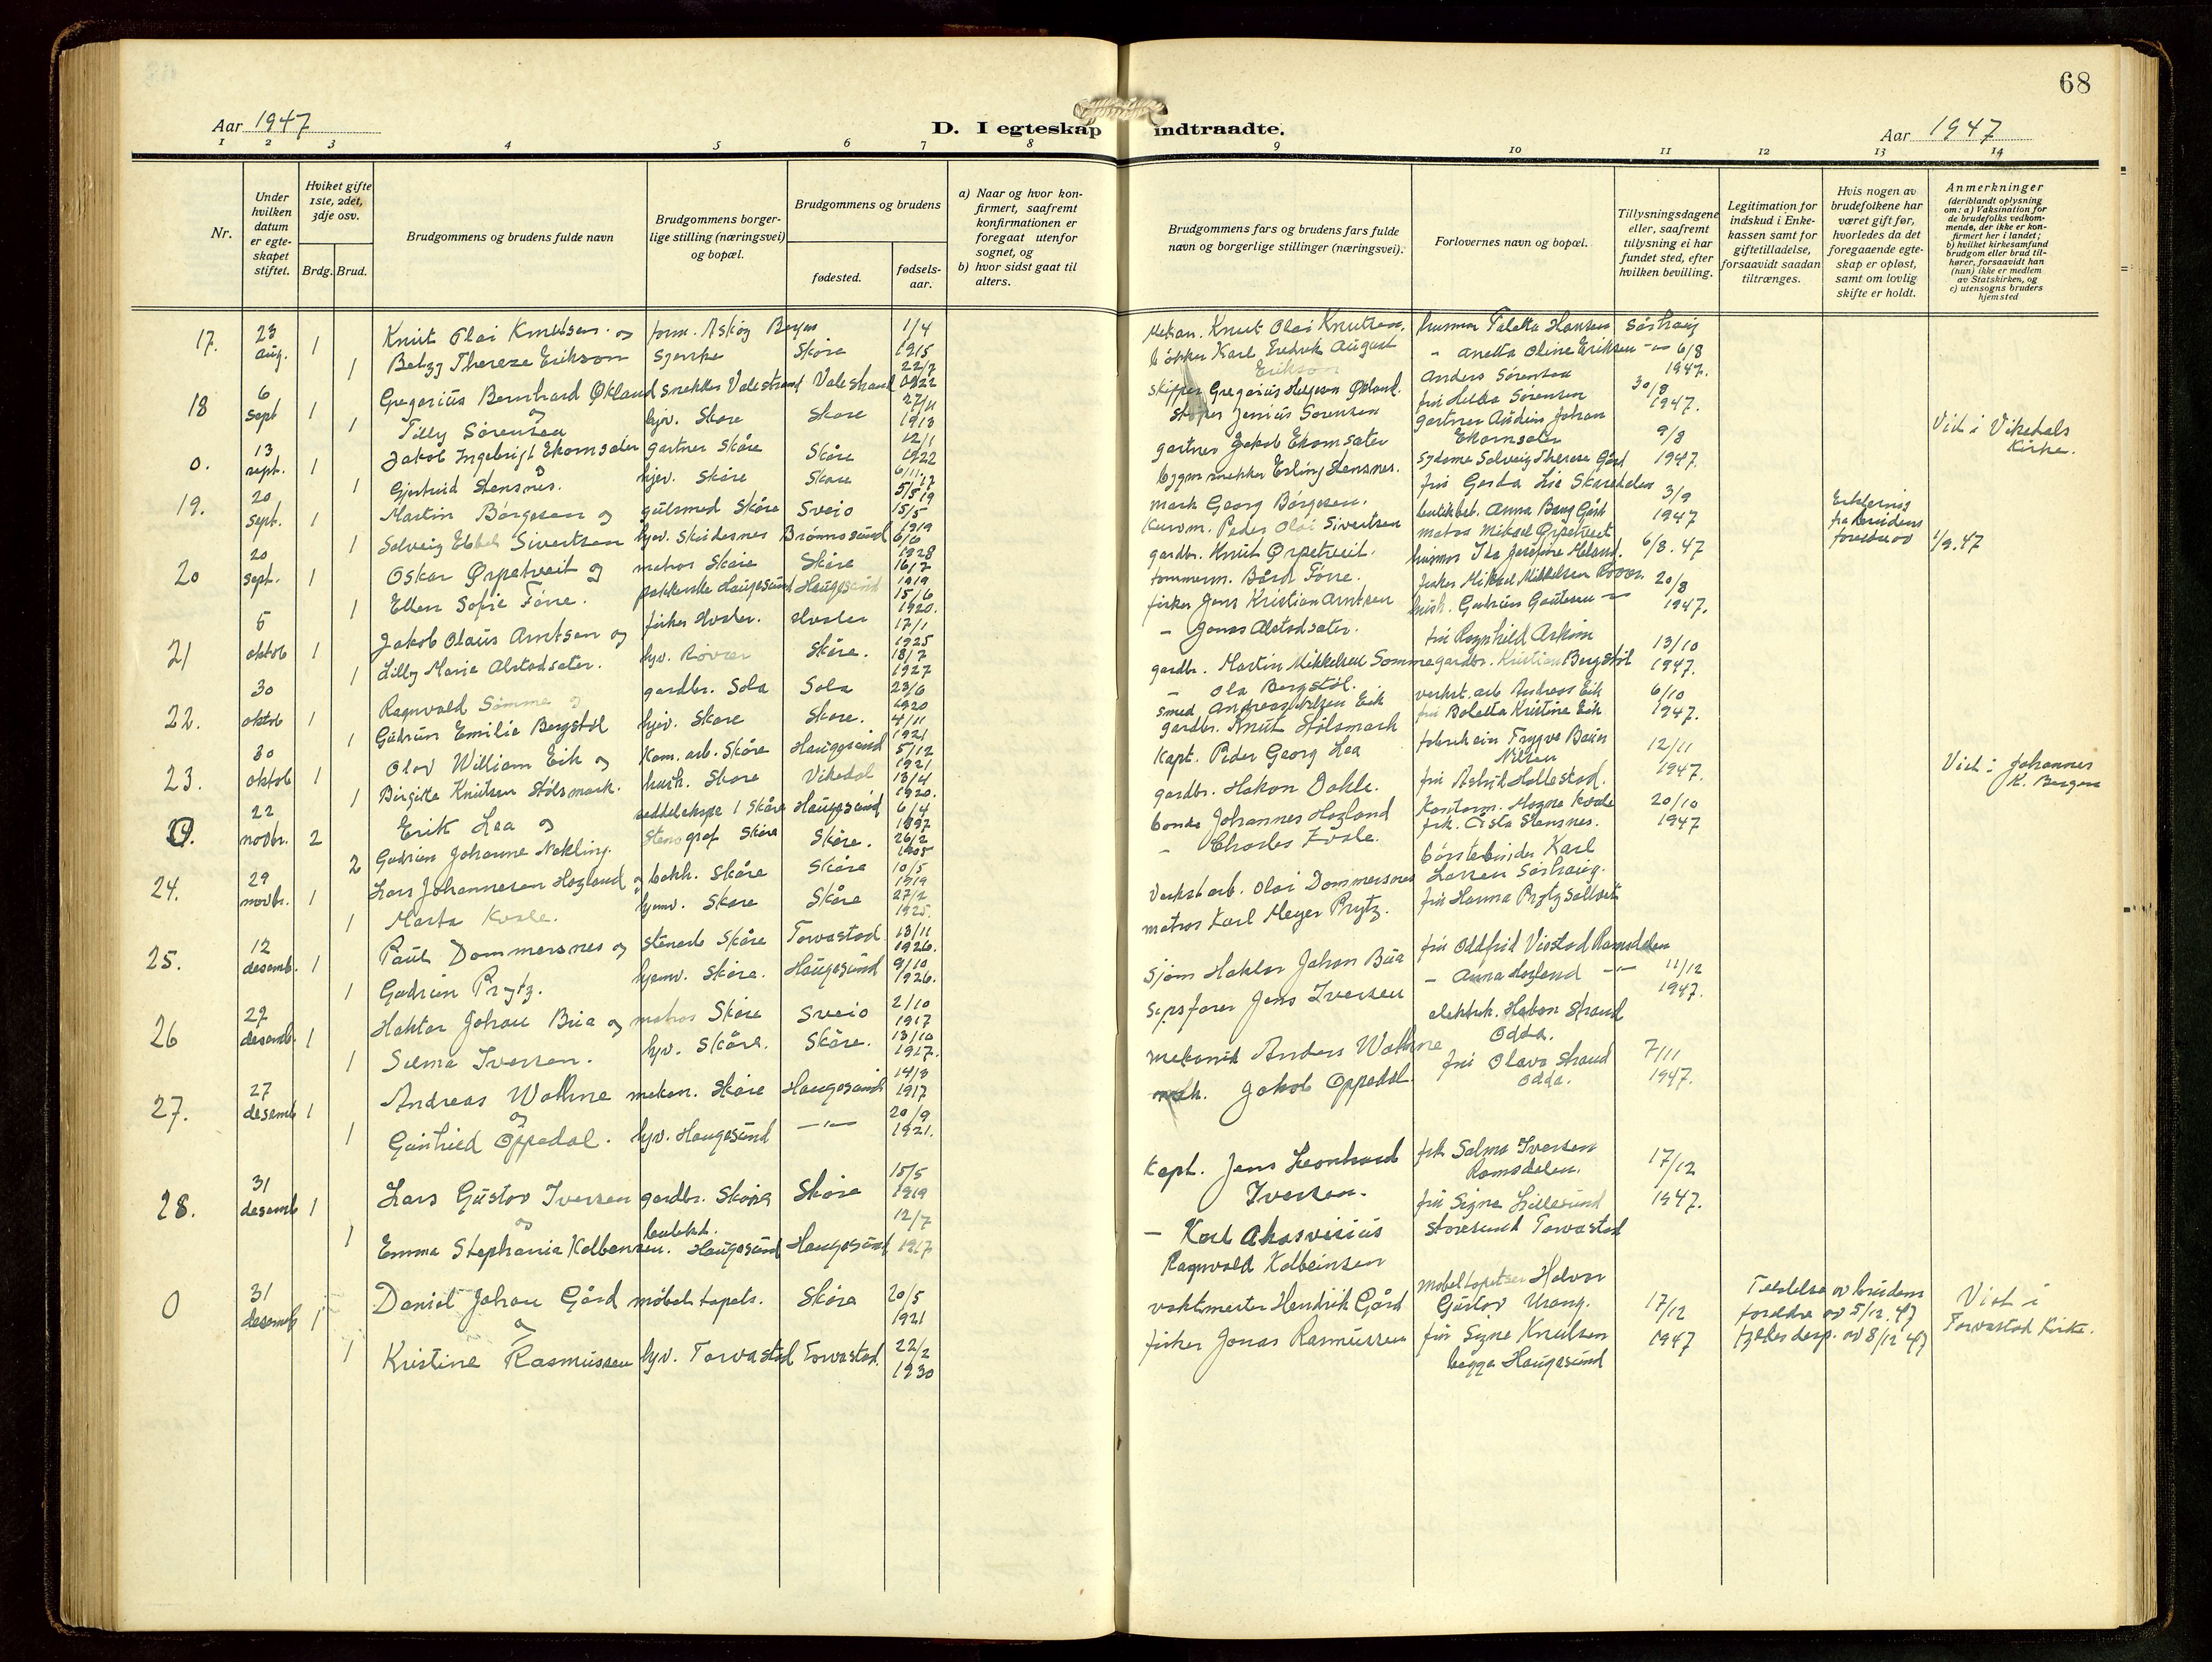 68
Aar 1947
D. I egteskap indtraadte.
Aar 1947
1 2 3 4 5 6 7 8 9 10 11 12 13 14
Nr.
Under hvilken datum er egteskapet stiftet.
Hviket gifte 1ste, 2det, 3dje osv.
Brdg. Brud.
Brudgommens og brudens fulde navn
Brudgommens borgerlige stilling (næringsvei) og bopæl.
Brudgommens og brudens
fødested.
fødselsaar.
a) Naar og hvor konfirmert, saafremt konfirmationen er foregaat utenfor sognet, og
b) hvor sidst gaat til alters.
Brudgommens fars og brudens fars fulde navn og borgerlige stillinger (næringsvei).
Forlovernes navn og bopæl.
Tillysningsdagene eller, saafremt tillysning ei har fundet sted, efter hvilken bevilling.
Legitimation for indskud i Enkekassen samt for giftetilladelse, forsaavidt saadan tiltrænges.
Hvis nogen av brudefolkene har været gift før, hvorledes da det foregaaende egteskap er opløst, samt om lovlig skifte er holdt.
Anmerkninger (deriblandt oplysning om: a) Vaksination for de brudefolks vedkommende, der ikke er konfirmert her i landet; b) hvilket kirkesamfund brudgom eller brud tilhører, forsaavidt han (hun) ikke er medlem av Statskirken, og c) utensogns bruders hjemsted
17. 23 aug. 1 Knut Olai Knutsen og form. Askøy Bergen 1/4 1915 Mekan. Knut Olai Knutsen. husmor Taletta Hansen Sørhaug
1 Betzy Therese Erikson Skåre 22/7 1922 bøkker Karl Fredrik August Erikson - Anetta Oline Eriksen -"- 6/8 1947.
18 6 sept 1 Gregarius Bernhard Økland snekker Valestrand Valestrand 27/11 1913 skipper Gregarius Helgesen Økland. Anders Sørensen 30/8
1 og Tilly Sørensen hjv. Skåre Skåre 12/1 1922 Jenius Sørensen fru Helga Sørensen 1947.
0. 13 sept. 1 Jakob Ingebrigt Ekornsæter gartner Skåre Skåre 6/11 17 gartner Jakob Ekornsæter gartner Audun Johan Ekornsæter 9/8 Vid i Vikedals Kirke.
1 og Gjertrud Stensnes. hjv. Skåre Skåre 5/5 19 bygm. snekker Erling Stensnes. sydame Solveig Therese Gård 1947.
19. 20 sept. 1 Martin Børgesen og gullsmed Skåre Sveio 15/5 1919 Georg Børgesen. fru Gerda Lie Skåredalen 3/9
1 Solveig Sivertsen hjv. Skudesnes Brønnøsund 6/6 1928 Peder Olai Sivertsen Anna Bang Gård 1947 Erklæring fra brudens foreldre av 1/9.47
20 20 sept. 1 Oskar Ørpetveit og matros Skåre Skåre 16/7 1919 gardbr. Knut Ørpetveit. matros Mikael Ørpetveit 6/8. 47
1 Ellen Sofie Førre. Haugesund Haugesund 15/6 1920. tømmerm. Bård Førre. husmor Ida Josefine
21 5 oktob 1 Jakob Olaus Arntsen og fisker Hvaler. Hvaler 17/1 1925 fisker Jens Kristian Arntsen fisker Mikael Mikkelsen Røvær 20/8
1 Lilly Marie Alstadsæter. hjv. Røvær Skåre. 18/7 1927 - Jonas Alstadsæter. hush. Gudrun Gautesen -"- 1947.
22. 30 oktob 1 Ragnvald Sømme og gardbr. Sola Sola 23/6 1920 gardbr. Martin Mikkelsen Sømme fru Ragnhild Askim 13/10
1 Gudrun Emilie Bergstøl hjv. Skåre Skåre. 4/11 1921 - Ola Bergstøl. gardbr. Kristian Bergstøl 1947.
23. 30 oktob 1 Olav William Eik og Kom. arb. Skåre Haugesund 5/12 1921 smed Andreas Nilsen Eik verkst. arb Andreas Eik 6/10
1 Birgitta Knutsen Stølsmark. hush. Skåre Vikedal 13/4 1920. gardbr. Knut Stølsmark fru Boletta Kristine Eik 1947.
22 novbr. 2 Erik Lea og Skåre Haugesund 6/4 1897 Kapt. Peder Georg Lea Trygve Nilsen 12/11 Vid i Johannes K. Bergen
2 Gudrun Johanne Nekling. Stenograf Skåre Skåre. 26/2 1905 gardbr. Håkon Dahle. fru Astrid Hallestad. 1947.
24. 29 novbr. 1 Lars Johannesen Hagland og bokh. Skåre Skåre 10/5 1919 bonde Johannes Hagland Kontorm. Magne Kvale 20/10
1 Marta Kvale. hjemv. Skåre Skåre 27/2 1925. - Charles Kvale. frk. Åsta Stensnes. 1947
25. 12 desemb. 1 Paul Dommersnes og Skåre Torvastad 13/11 1926. Verkst arb. Olai Dommersnes børstebinder Karl Larsen Sørhaug.
1 Gudrun Prytz. hjemv. Skåre. Haugesund 9/10 1926. matros Karl Meyer Prytz. fru Hanna Prytz
26 27 desemb. 1 Haktor Johan Bua og matros Skåre Sveio 2/10 1917 Sjøm Haktor Johan Bua fru Oddfrid Vistad Ramsdalen 11/12
1 Selma Iversen. hjv. Skåre. Skåre. 13/10 1917. Skipsfører Jens Iversen - Anna Hagland -"- 1947.
27. 27 desemb 1 Andreas Wathne mekan. Skåre Haugesund 14/3 1917 mekanik Anders Wathne elektrik. Håkon Strand Odda. 7/11
1 og Gunhild Oppedal. hjv. Haugesund -"- 20/9 1921. Jakob Oppedal fru Olava Strand Odda. 1947.
28. 31 desemb 1 Lars Gustav Iversen gardbr. Skåre Skåre 15/5 1919 Kapt. Jens Leonhard Iversen. frk Salma Iversen Ramsdalen. 17/12
1 og Emma Stephania Kolbensen. Haugesund Haugesund 12/7 1917 - Karl Ahasverius Ragnvald Kolbeinsen fru Signe Lillesund Storesund Torvastad 1947.
0 31 desemb 1 Daniel Johan Gård møbeltapets. Skåre 20/5 1921 vaktmester Hendrik Gård møbeltapetser Halvor Gustav Urang. 17/12 Tilladelse av brudens foreldre av 5/12.47 Vid i Torvastad Kirke.
1 og Kristine Rasmussen hjv. Torvastad Torvastad. 22/2 1930 fisker Jonas Rasmussen fru Signe Knutsen begge Haugesund 1947 fylkesdisp. av 8/12 47